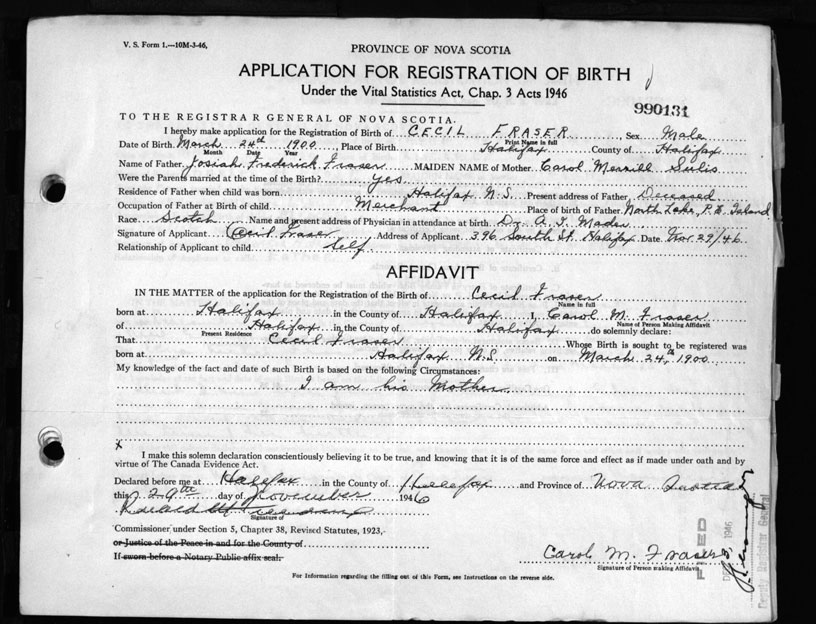 V. S. Form 1.—10M-3-46,
PROVINCE OF NOVA SCOTIA
APPLICATION FOR REGISTRATION OF BIRTH
Under the Vital Statistics Act, Chap. 3 Acts 1946
990131
TO THE REGISTRAR GENERAL OF NOVA SCOTIA.
I hereby make application for the Registration of Birth of CECIL FRASER, Sex Male
Print Name in full
Date of Birth March 24th 1900 Place of Birth Halifax County of Halifax
Month Date Year
Name of Father Josiah Frederick Fraser MAIDEN NAME of Mother Carol Merrill Sulis
Were the Parents married at the time of the Birth? yes
Residence of Father when child was born Halifax N.S. Present address of Father Deceased
Occupation of Father at Birth of child Merchant Place of birth of Father North Lake, P.E. Island
Race Scotch Name and present address of Physician in attendance at birth Dr. A. I. Mader
Signature of Applicant Cecil Fraser Address of Applicant 396 South St. Halifax Date Nov 29/46
Relationship of Applicant to child Self
AFFIDAVIT
IN THE MATTER of the application for the Registration of the Birth of Cecil Fraser
Name in full
born at Halifax in the County of Halifax I, Carol M. Fraser
Name of Person Making Affidavit
of Halifax in the County of Halifax do solemnly declare:
Present Residence
That Cecil Fraser Whose Birth is sought to be registered was
born at Halifax N.S. on March 24th, 1900
My knowledge of the fact and date of such Birth is based on the following Circumstances:
I am his Mother
x
I make this solemn declaration conscientiously believing it to be true, and knowing that it is of the same force and effect as if made under oath and by
virtue of The Canada Evidence Act.
Declared before me at Halifax in the County of Halifax and Province of Nova Scotia
this 29th day of November 1946
Signature of
Commissioner under Section 5, Chapter 38, Revised Statutes, 1923,
or Justice of the Peace in and for the County of
If sworn before a Notary Public affix seal.
Carol M. Fraser
Signature of Person making Affidavit
FILED
DEC 3, 1946
Deputy Registrar General
For Information regarding the filling out of this Form, see Instructions on the reverse side.